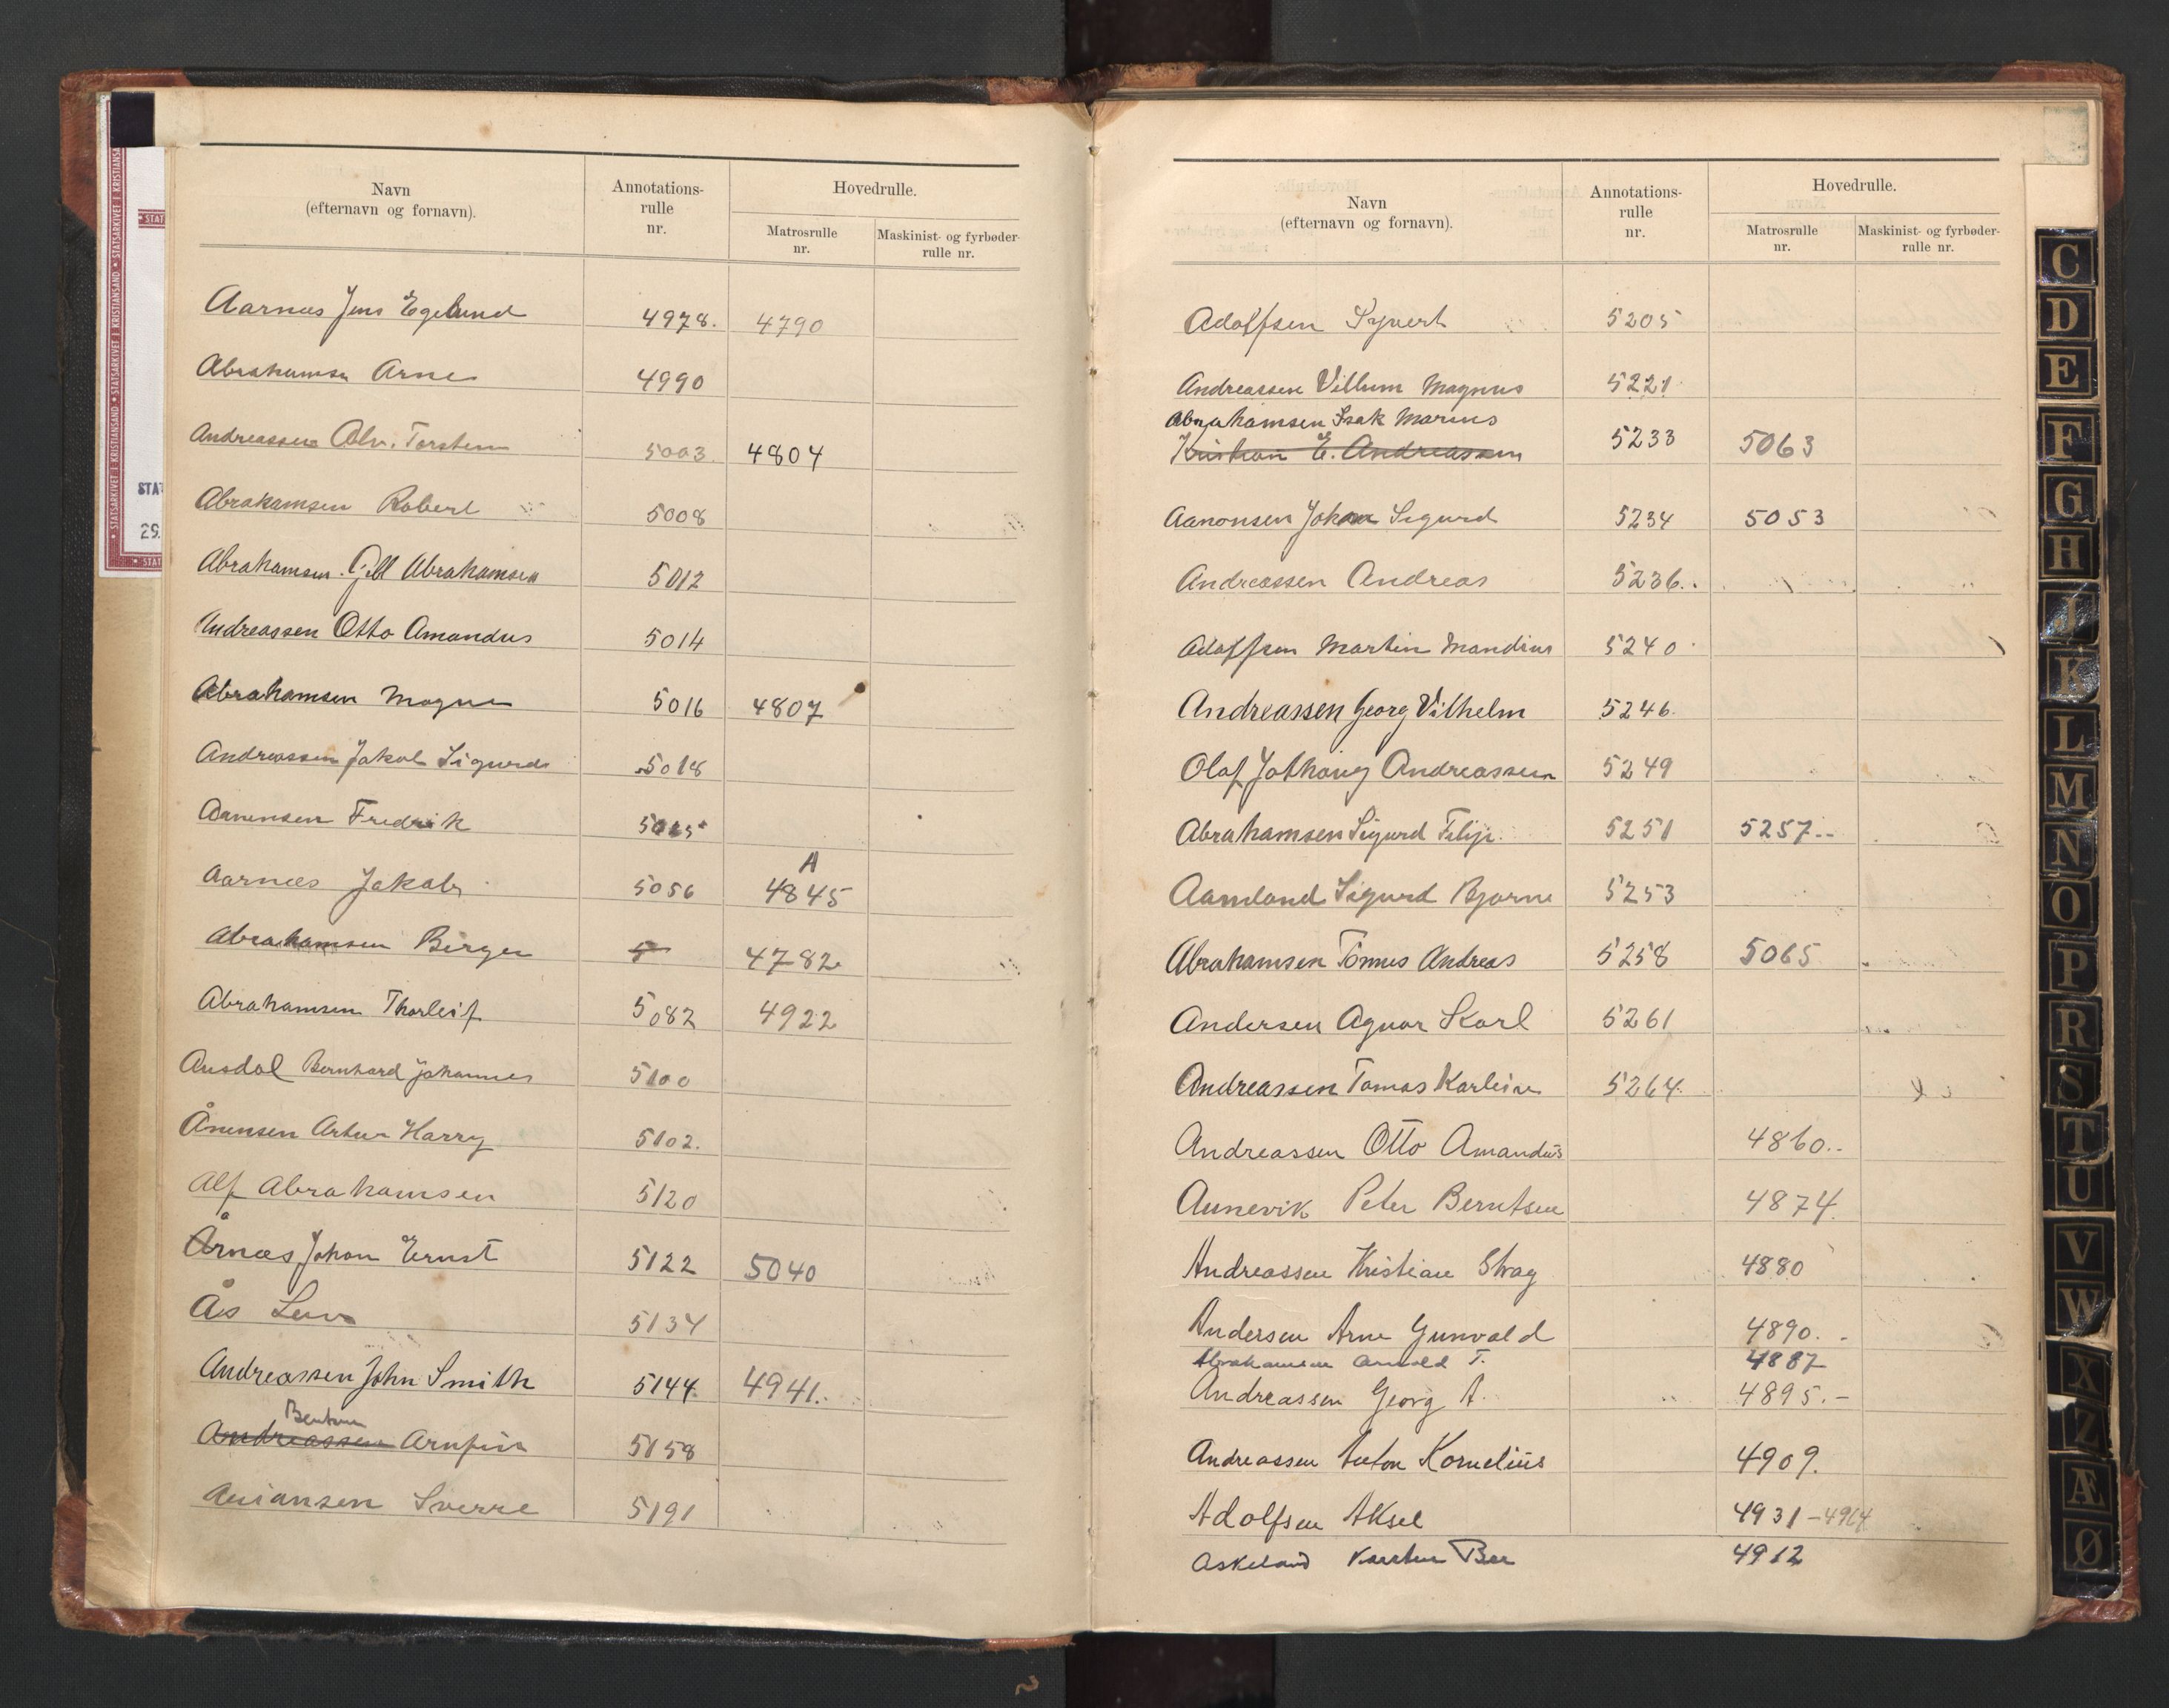 Navn
(efternavn og fornavn).
Annotations-
rulle
nr.
Hovedrulle.
Matrosrulle
nr.
Maskinist- og fyrbøder-
rulle nr.
Aarnæs Jens Egelund 4978. 4790
Abrahamsen Arne 4990
Andreassen Alv. Torstein 5003. 4804
Abrahamsen Robert 5008
Abrahamsen Abrahamsen 5012
Andreassen Otto Amandus 5014
Abrahamsen Magne 5016 4807
Andreassen Jakob Sigurd 5018
Aanensen Fredrik
A
Aarnæs Jakob 5056 4845
Abrahamsen Birger 5 4782
Abrahamsen Thorleif 5082 4922
Ausdal Bernhard Johannes 5100
Ånensen Artur Harry 5102.
Alf Abrahamsen 5120
Årnæs Johan Ernst 5122 5040
Ås 5134
Andreassen John Smith 5144 4941.
Andreassen Arnfin 5158
Sverre 5191
Navn
(efternavn og fornavn).
Annotations-
rulle
nr.
Hovedrulle.
Matrosrulle
nr.
Maskinist- og fyrbøder-
rulle nr.
Adolfsen Syvert 5205
Andreassen Villum Magnus 5221
Abrahamsen Isak Marius
Kristian E. Andreassen 5233 5063
Aanonsen Johan Sigurd 5234 5053
Andreassen Andreas 5236.
Adolfsen Martin Mandius 5240
Andreassen Georg Vilhelm 5246.
Olaf Andreassen 5249
Abrahamsen Sigurd Filip. 5251 5257
Aamland Sigurd Bjarne 5253
Abrahamsen Tønnes Andreas 5258 5065
Andersen Agnar Karl 5261
Andreassen Tomas 5264.
Andreassen Otto Amandus 4860..
Aunevik Peter Berntsen 4874.
Andreassen Kristian Stray 4880
Andersen Arne Gunvald 4890.
Abrahamsen Arnold T. 4887
Andreassen Georg A. 4895.-
Andreassen Anton Kornelius 4909.
Adolfsen Aksel 4931-4964
Askeland Karsten 4912
C
D
E
F
G
H
J
K
L
M
N
O
P
R
S
T
U
V
W
X
Z
Æ
Ø